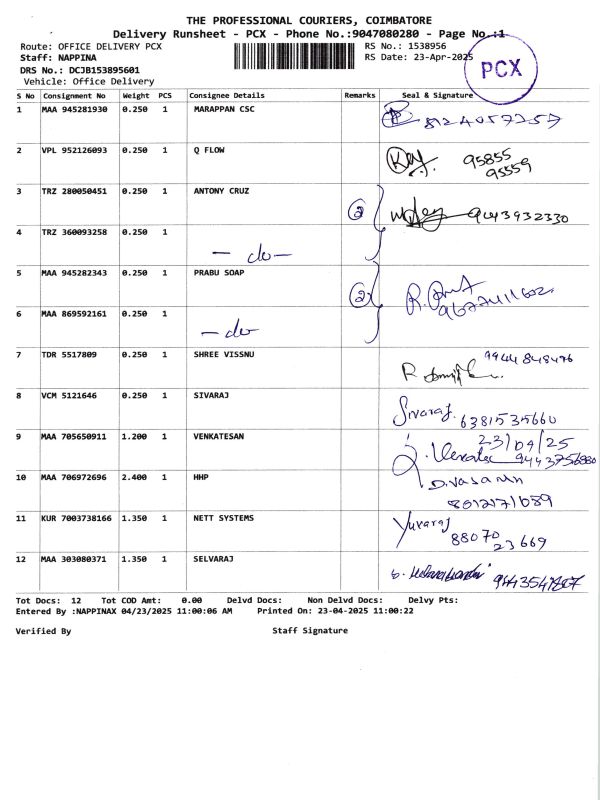 THE PROFESSIONAL COURIERS, COIMBATORE
Delivery Runsheet - PCX - Phone No.:9047080280 - Page No.:1
Route: OFFICE DELIVERY PCX
RS No.: 1538956
Staff: NAPPINA
RS Date: 23-Apr-2025
DRS No.: DCJB153895601
Vehicle: Office Delivery
PCX
S No Consignment No Weight PCS Consignee Details Remarks Seal & Signature
1 MAA 945281930 0.250 1 MARAPPAN CSC 8124057257
2 VPL 952126093 0.250 1 Q FLOW 95855
95559
3 TRZ 280050451 0.250 1 ANTONY CRUZ 2 9443932330
4 TRZ 360093258 0.250 1
- do -
5 MAA 945282343 0.250 1 PRABU SOAP 2
6 MAA 869592161 0.250 1
- do
7 TDR 5517809 0.250 1 SHREE VISSNU 9944848476
8 VCM 5121646 0.250 1 SIVARAJ Sivaraj. 6381535660
9 MAA 705650911 1.200 1 VENKATESAN 23/04/25
10 MAA 706972696 2.400 1 HHP D.Vasanth
8012171089
11 KUR 7003738166 1.350 1 NETT SYSTEMS Yuvaraj
88070
23669
12 MAA 303080371 1.350 1 SELVARAJ
Tot Docs: 12 Tot COD Amt: 0.00 Delvd Docs: Non Delvd Docs: Delvy Pts:
Entered By :NAPPINAX 04/23/2025 11:00:06 AM Printed On: 23-04-2025 11:00:22
Verified By Staff Signature